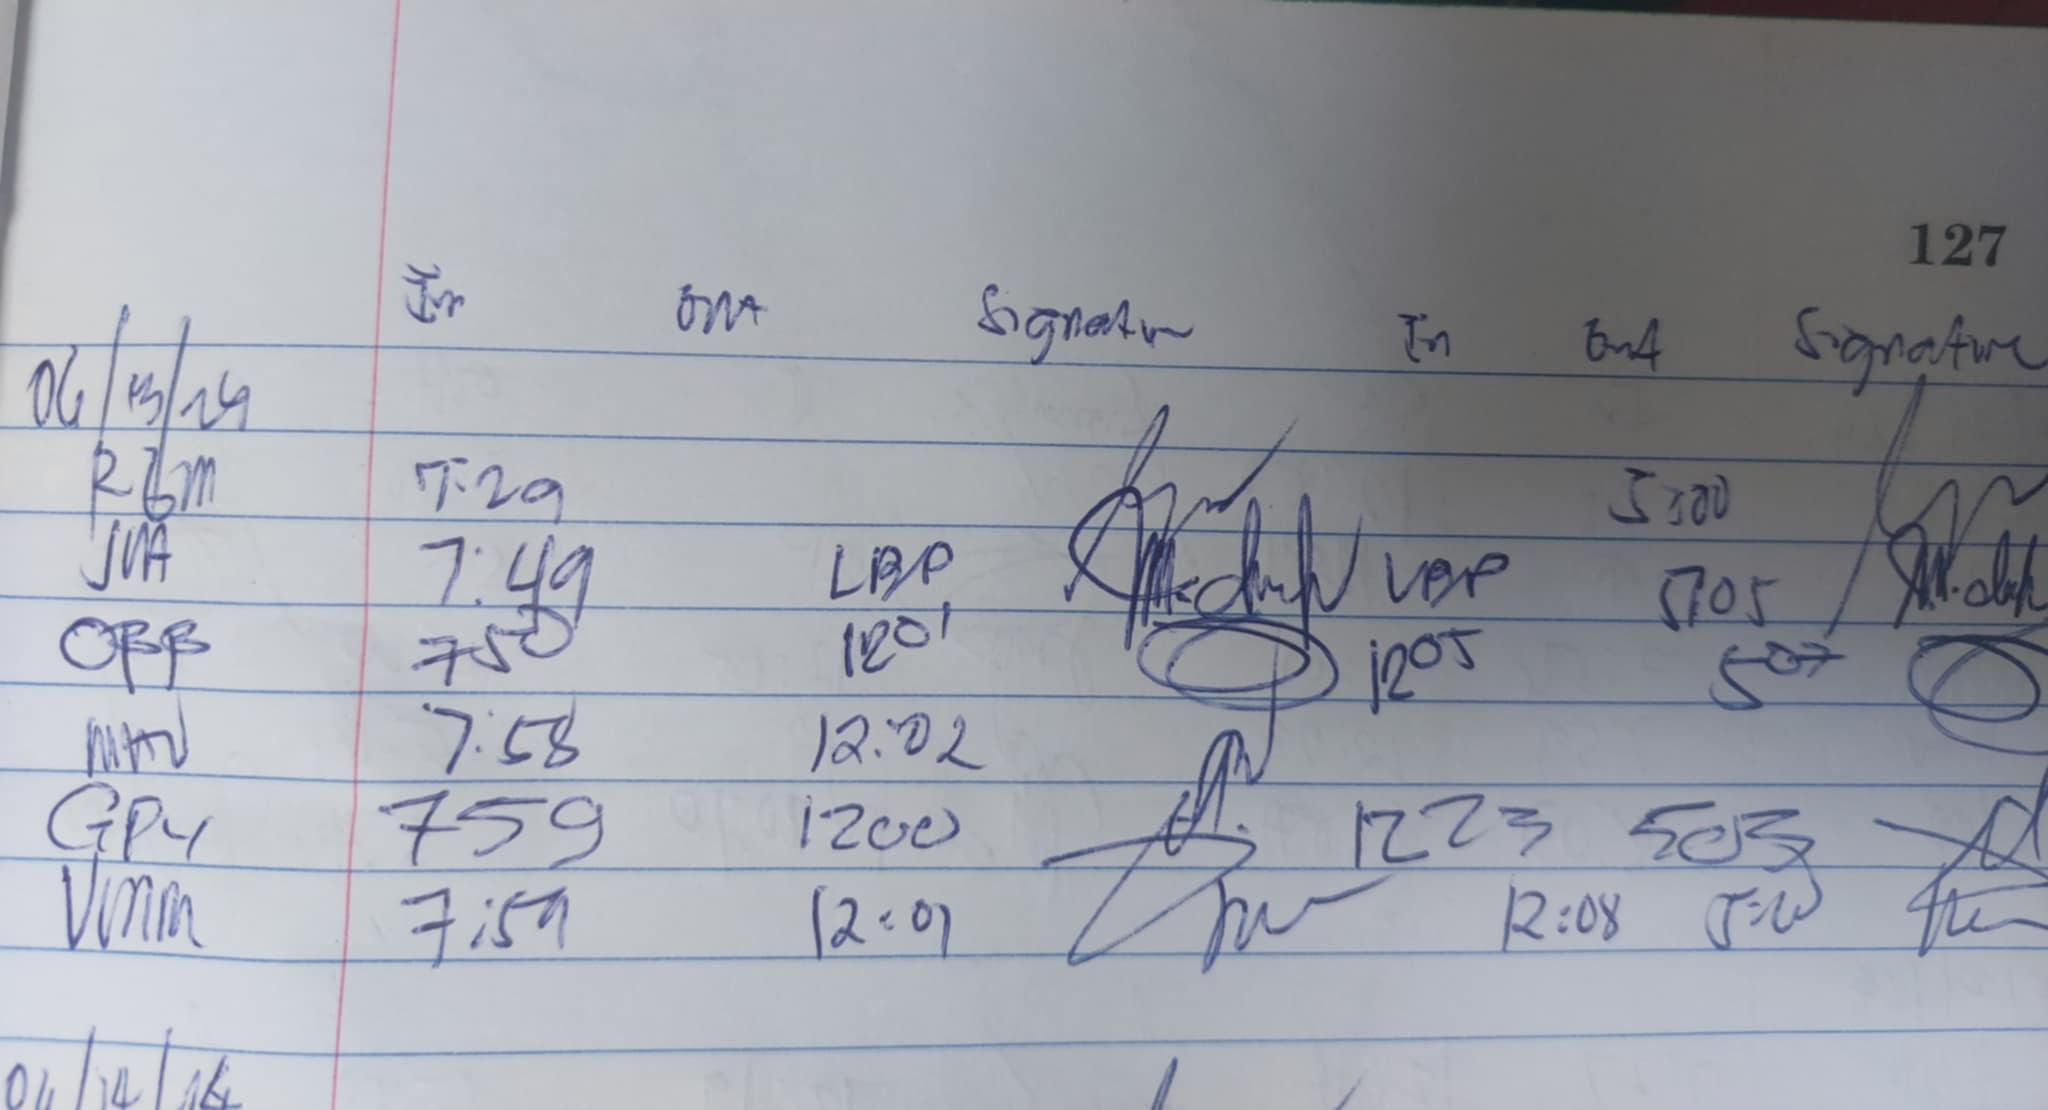 127
In Out Signature In Out Signature
06/13/24
RGM 7:29 5:00
JVA 7:49 LBP LBP 5:05
OBB 750 1201 1205 507
MAV 7:58 12:02
GPY 759 1200 1223 503
7:59 12:01 12:08